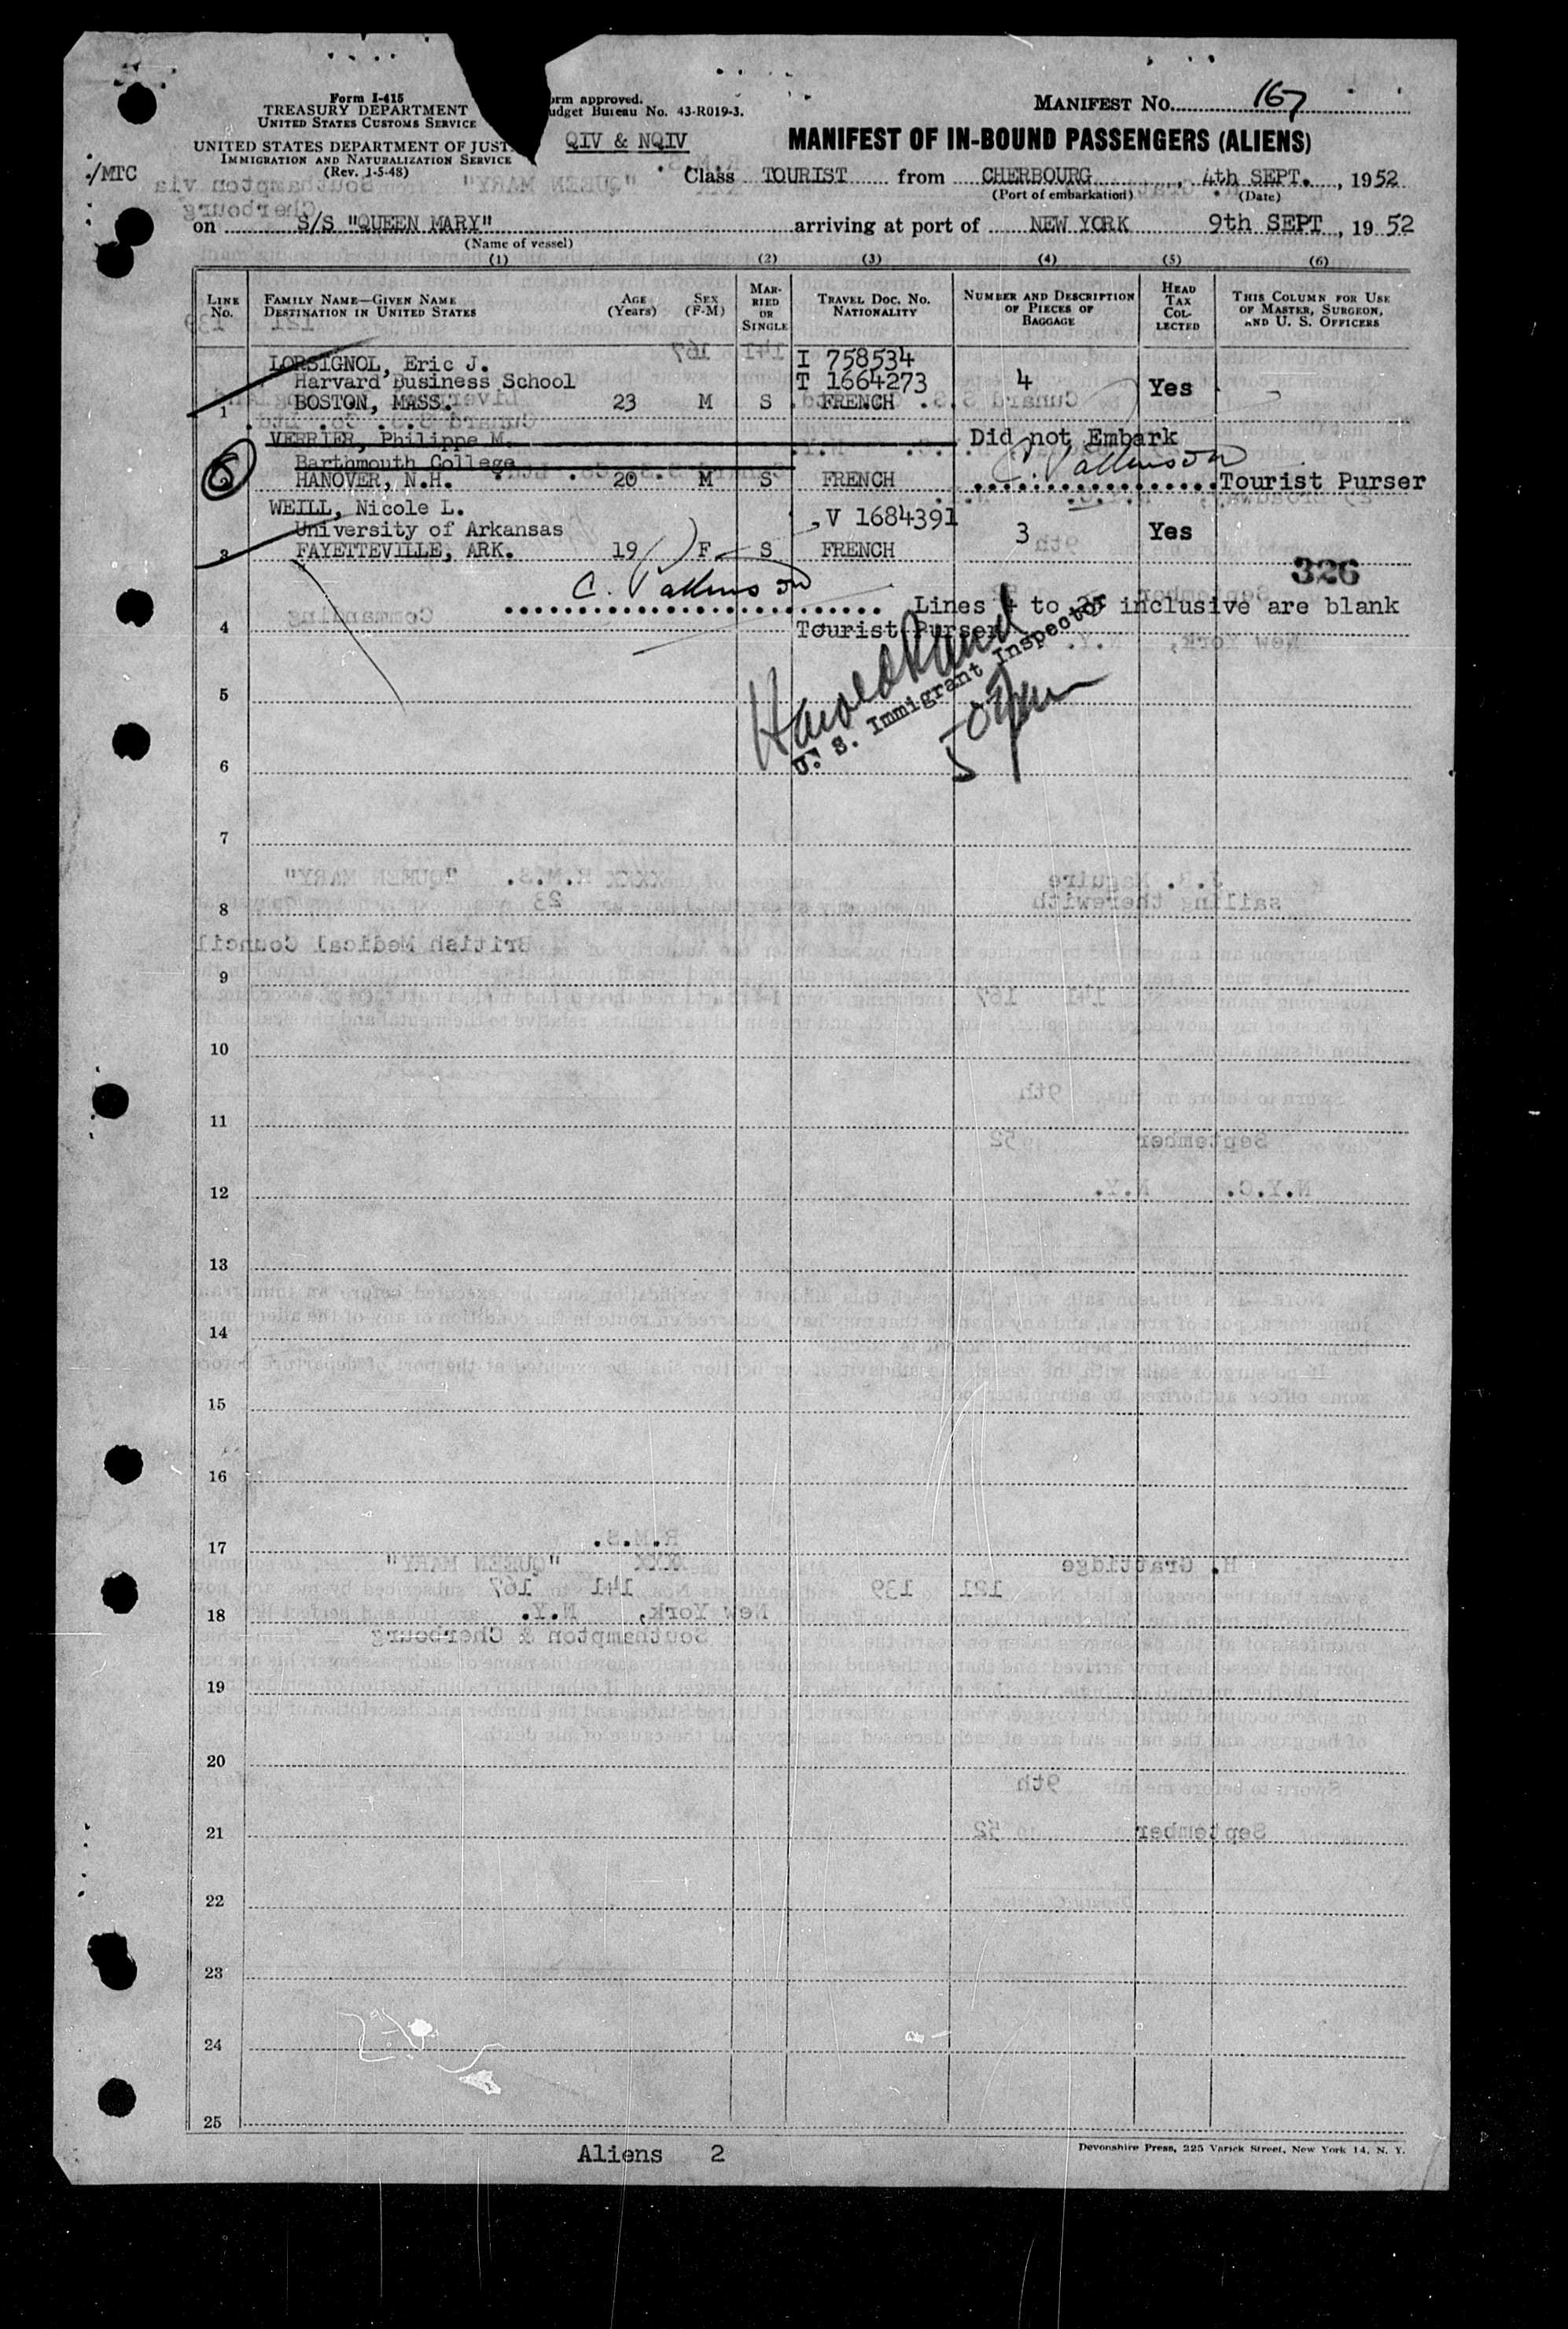 Form I-415
TREASURY DEPARTMENT
UNITED STATES CUSTOMS SERVICE
UNITED STATES DEPARTMENT OF JUST
IMMIGRATION AND NATURALIZATION SERVICE
(Rev. 1-5-48)
/MTC
orm approved.
udget Bureau No. 43-R019-3.
QIV & NQIV
MANIFEST NO. 167
MANIFEST OF IN-BOUND PASSENGERS (ALIENS)
Class TOURIST from CHERBOURG, 4th SEPT., 1952
(Port of embarkation) (Date)
on S/S "QUEEN MARY" arriving at port of NEW YORK 9th SEPT, 19 52
(Name of vessel)
(1) (2) (3) (4) (5) (6)
LINE NO.
FAMILY NAME—GIVEN NAME
DESTINATION IN UNITED STATES
AGE (Years)
SEX (F-M)
MARRIED OR SINGLE
TRAVEL DOC. NO. NATIONALITY
NUMBER AND DESCRIPTION OF PIECES OF BAGGAGE
HEAD TAX COLLECTED
THIS COLUMN FOR USE OF MASTER, SURGEON, AND U. S. OFFICERS
LORSIGNOL, Eric J. I 758534
Harvard Business School T 1664273 4 Yes
1 BOSTON, MASS. 23 M S FRENCH
VERRIER, Philippe M. Did not Embark
Barthmouth College
2 HANOVER, N.H. 20 M S FRENCH Tourist Purser
WEILL, Nicole L. V 1684391
University of Arkansas 3 Yes
3 FAYETTEVILLE, ARK. 19 F S FRENCH
326
Lines 4 to 25 inclusive are blank
4 Tourist Purser
U. S. Immigrant Inspector
5
6
7
8
9
10
11
12
13
14
15
16
17
18
19
20
21
22
23
24
25
Aliens 2
Devonshire Press, 225 Varick Street, New York 14, N. Y.